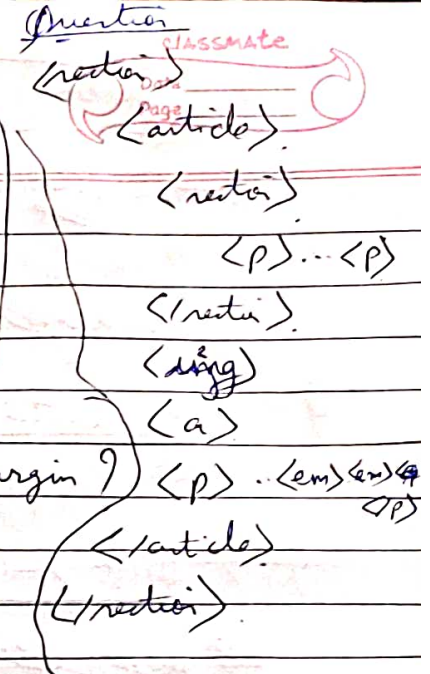 Question
CLASSMATE
<section>
Date
Page
<article>
<section>
<p>...<p>
</section>
<img>
<a>
rgin ? <p> ..<em><em>
</p>
</article>
</section>